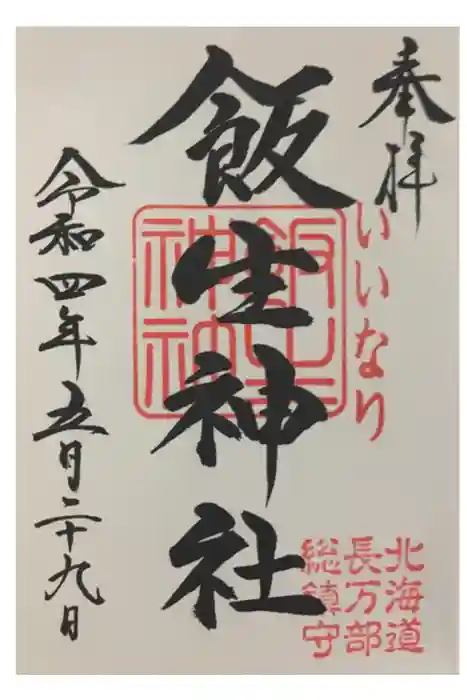 奉拝
いいなり
北海道
長万部
総鎮守
飯生神社
飯生神社
令和四年五月二十九日